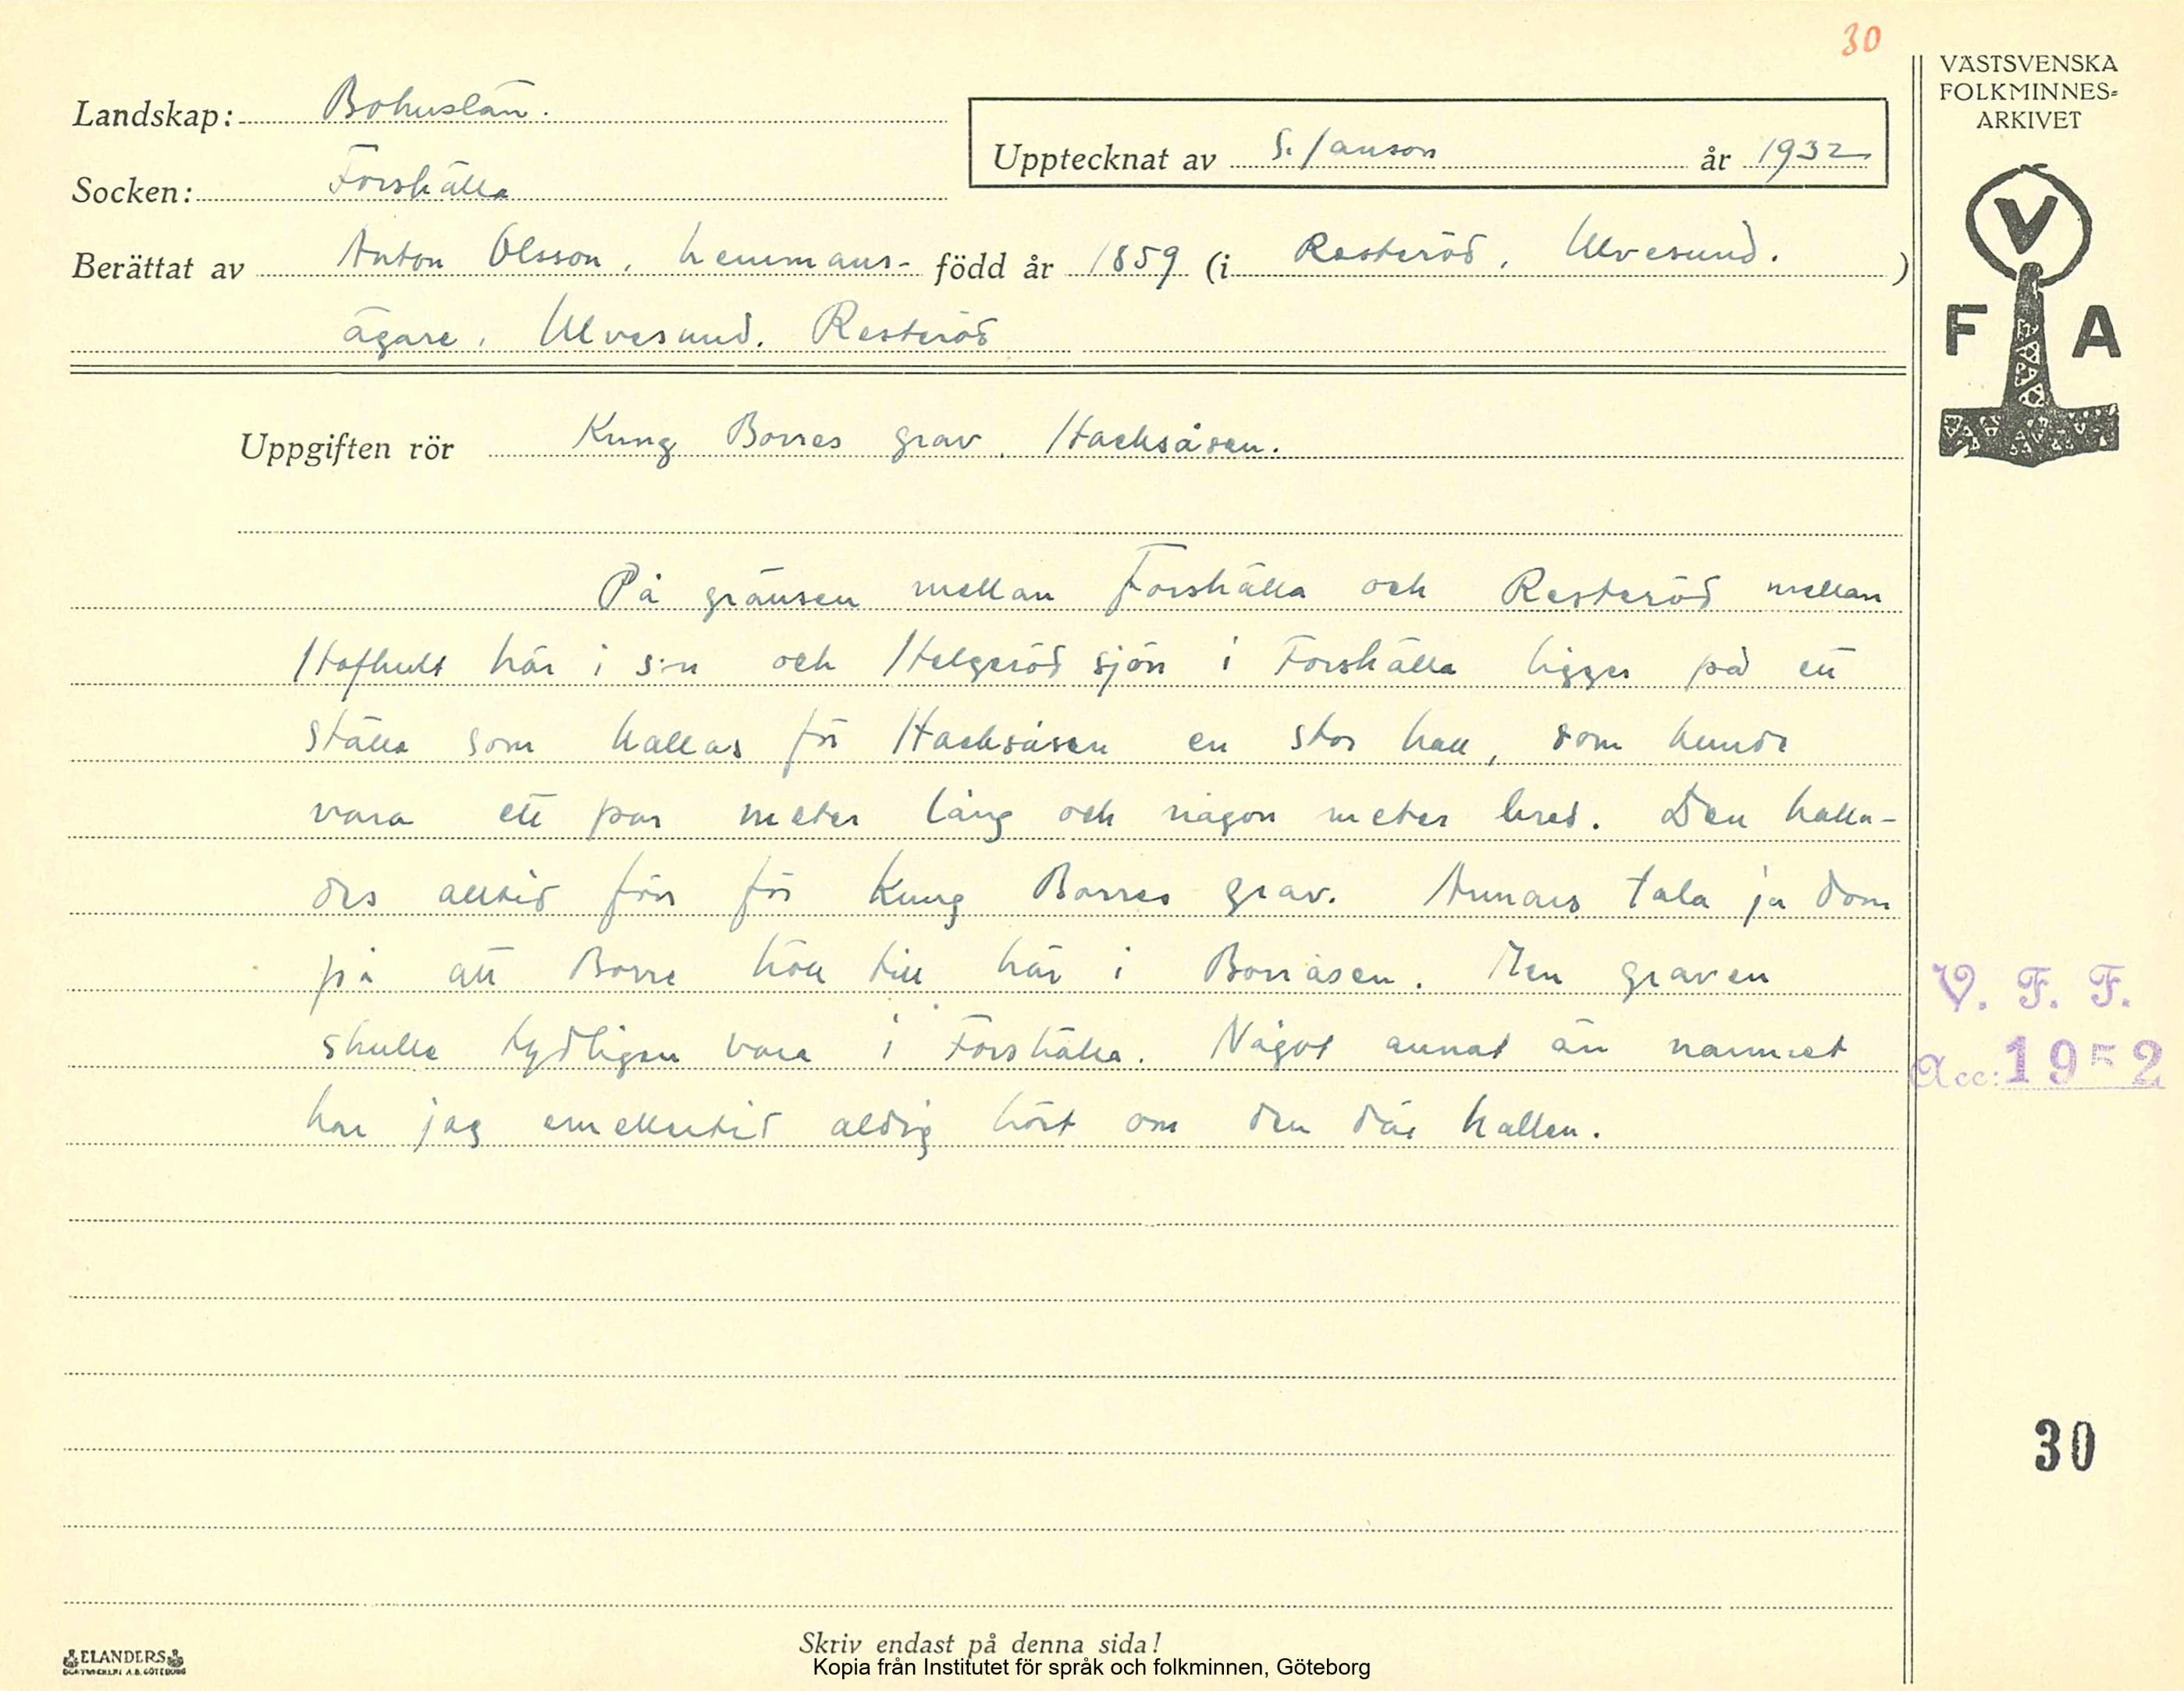 30
VÄSTSVENSKA
FOLKMINNES=
ARKIVET
Landskap: Bohuslän.
Upptecknat av S. Janson år 1932
Socken: Forshälla
Berättat av Anton Olsson, hemmans- född år 1859 (i Resteröd, Ulvesund. )
ägare, Ulvesund. Resteröd
V
F A
Uppgiften rör Kung Borres grav, Hacksåsen.
På gränsen mellan Forshälla och Resteröd mellan
Hafhult här i s:n och Helgeröd sjön i Forshälla ligger på ett
ställe som kallas för Hacksåsen en stor hall, som kunde
vara ett par meter lång och någon meter bred. Den kalla-
des alltid förr för Kung Borres grav. Annars tala ja dom
på att Borre höll till här i Borråsen. Men graven
skulle tydligen vara i Forshälla. Något annat än namnet
har jag emellertid aldrig hört om den där hallen.
V. F. F.
Acc: 1952
30
Skriv endast på denna sida!
ELANDERS
BOKTRYCKERI A.B. GÖTEBORG
Kopia från Institutet för språk och folkminnen, Göteborg